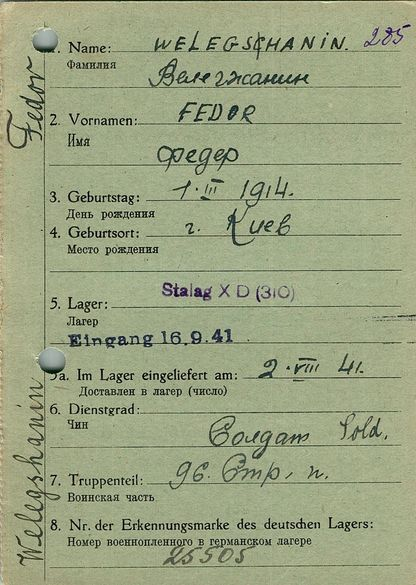 1. Name: WELEGSCHANIN. 285
Фамилия
Велегжанин
2. Vornamen: FEDOR
Имя
Федер
3. Geburtstag: 1. III 1914.
День рождения
4. Geburtsort: г. Киев
Место рождения
Stalag X D (310)
5. Lager:
Лагер
Eingang 16.9.41
5a. Im Lager eingeliefert am: 2. VIII 41.
Доставлен в лагер (число)
6. Dienstgrad:
Чин
Солдат Sold.
7. Truppenteil: 96. Стр. п.
Воинская часть
8. Nr. der Erkennungsmarke des deutschen Lagers:
Номер военнопленного в германском лагере
25505
Welegshanin
Fedor